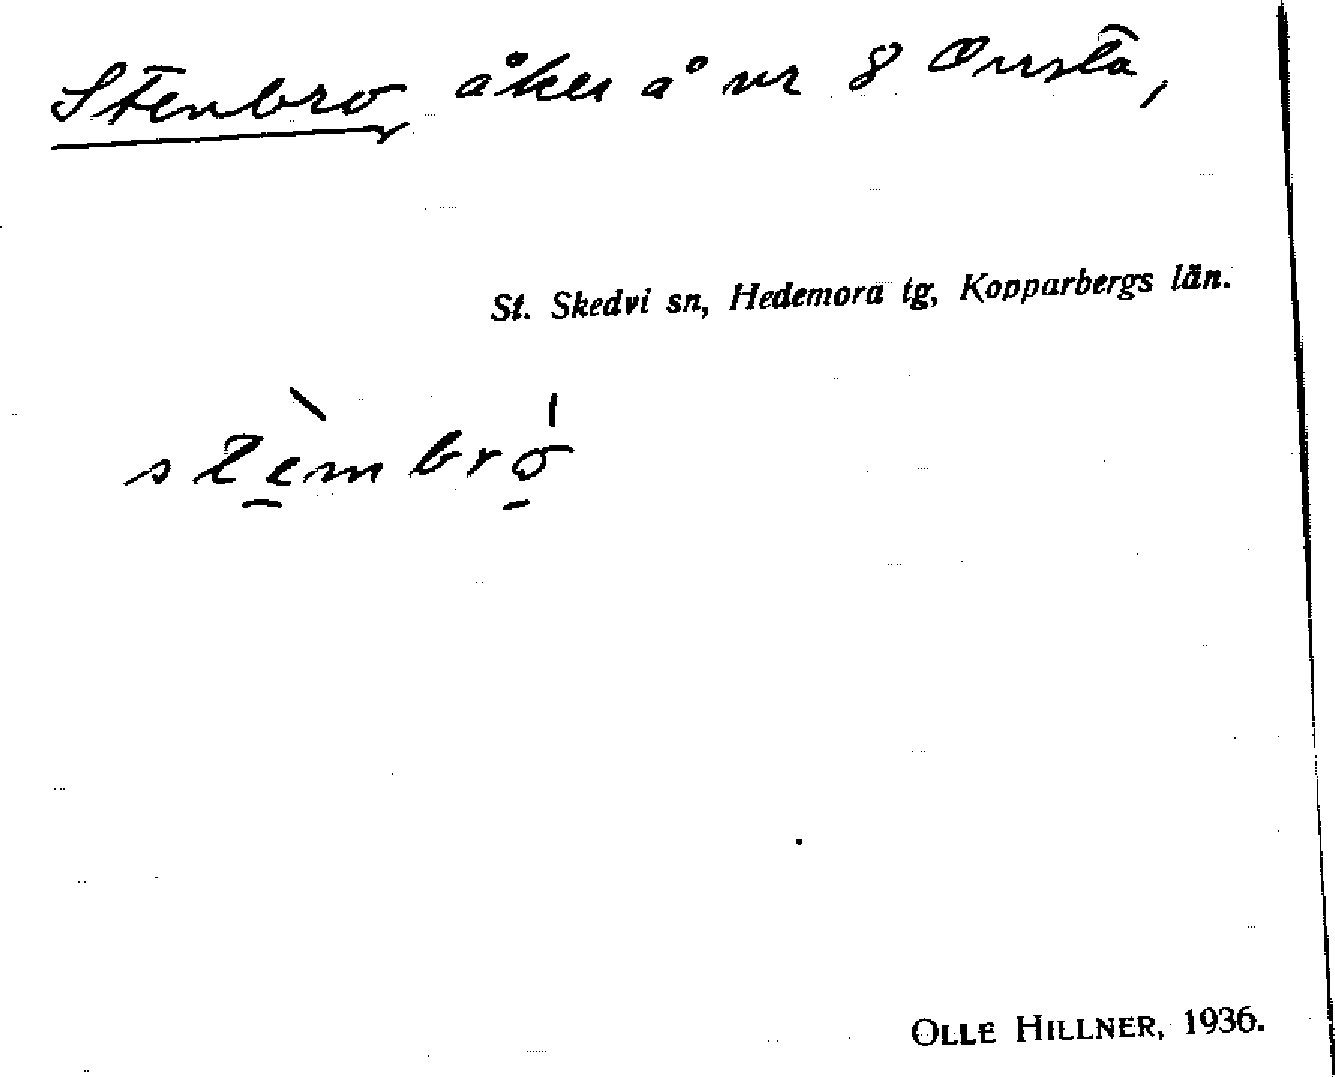 Stenbro, åker å nr 8 Onsta,
St. Skedvi sn, Hedemora tg, Kopparbergs län.
stèmbró
OLLE HILLNER, 1936.